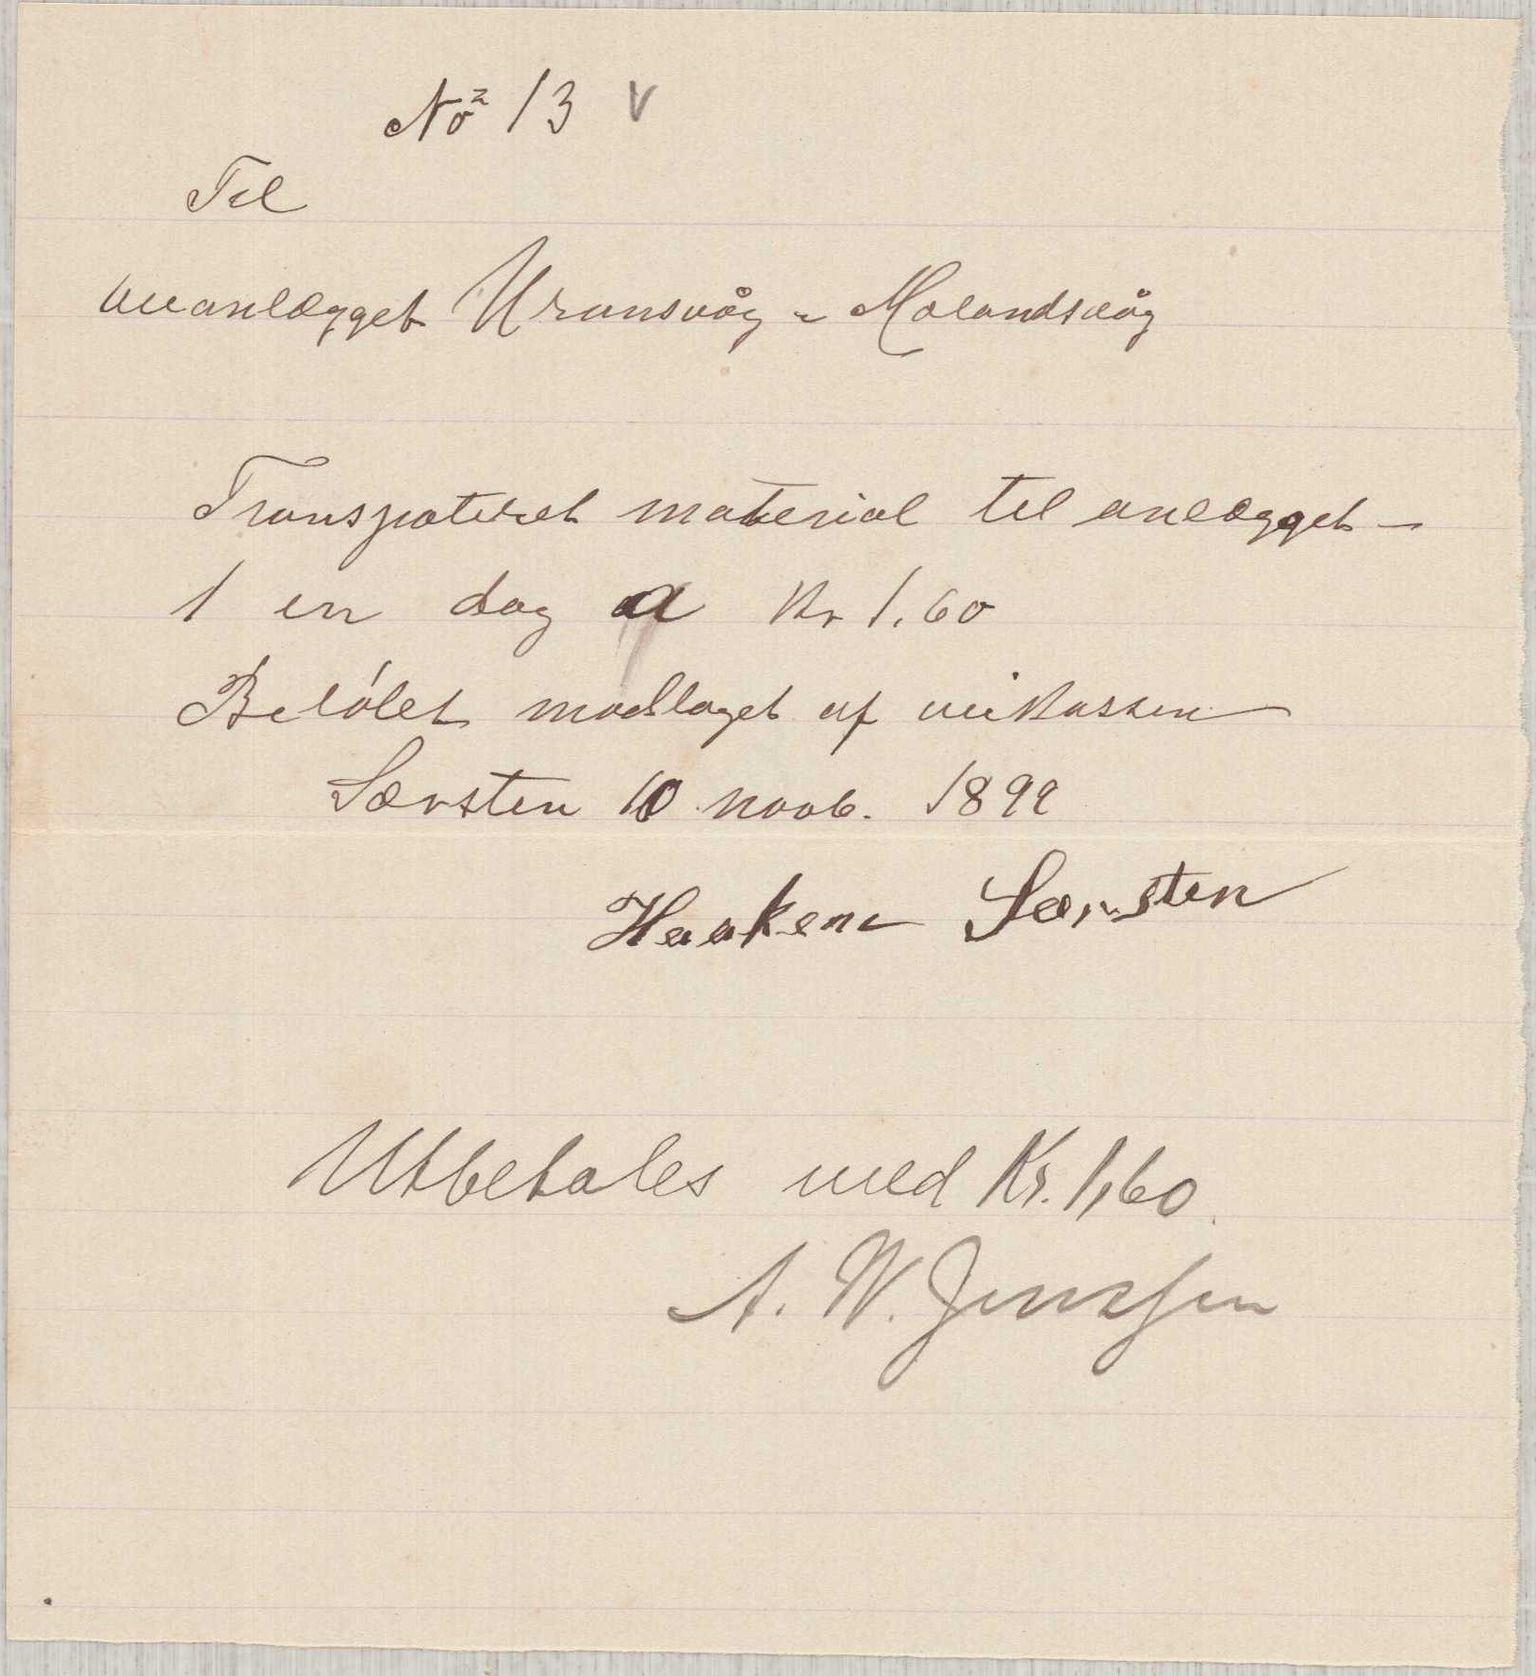 No 13 V
Til
veianlægget Uransvåg - Molandsvåg
Transpoteret material til anlægget -
1 en dag a Kr 1.60
Beløbet modtaget af veikassen
Særsten 10 novb. 1899
Haaken Særsten
Utbetales med Kr. 1,60.
A. W. Jenssen